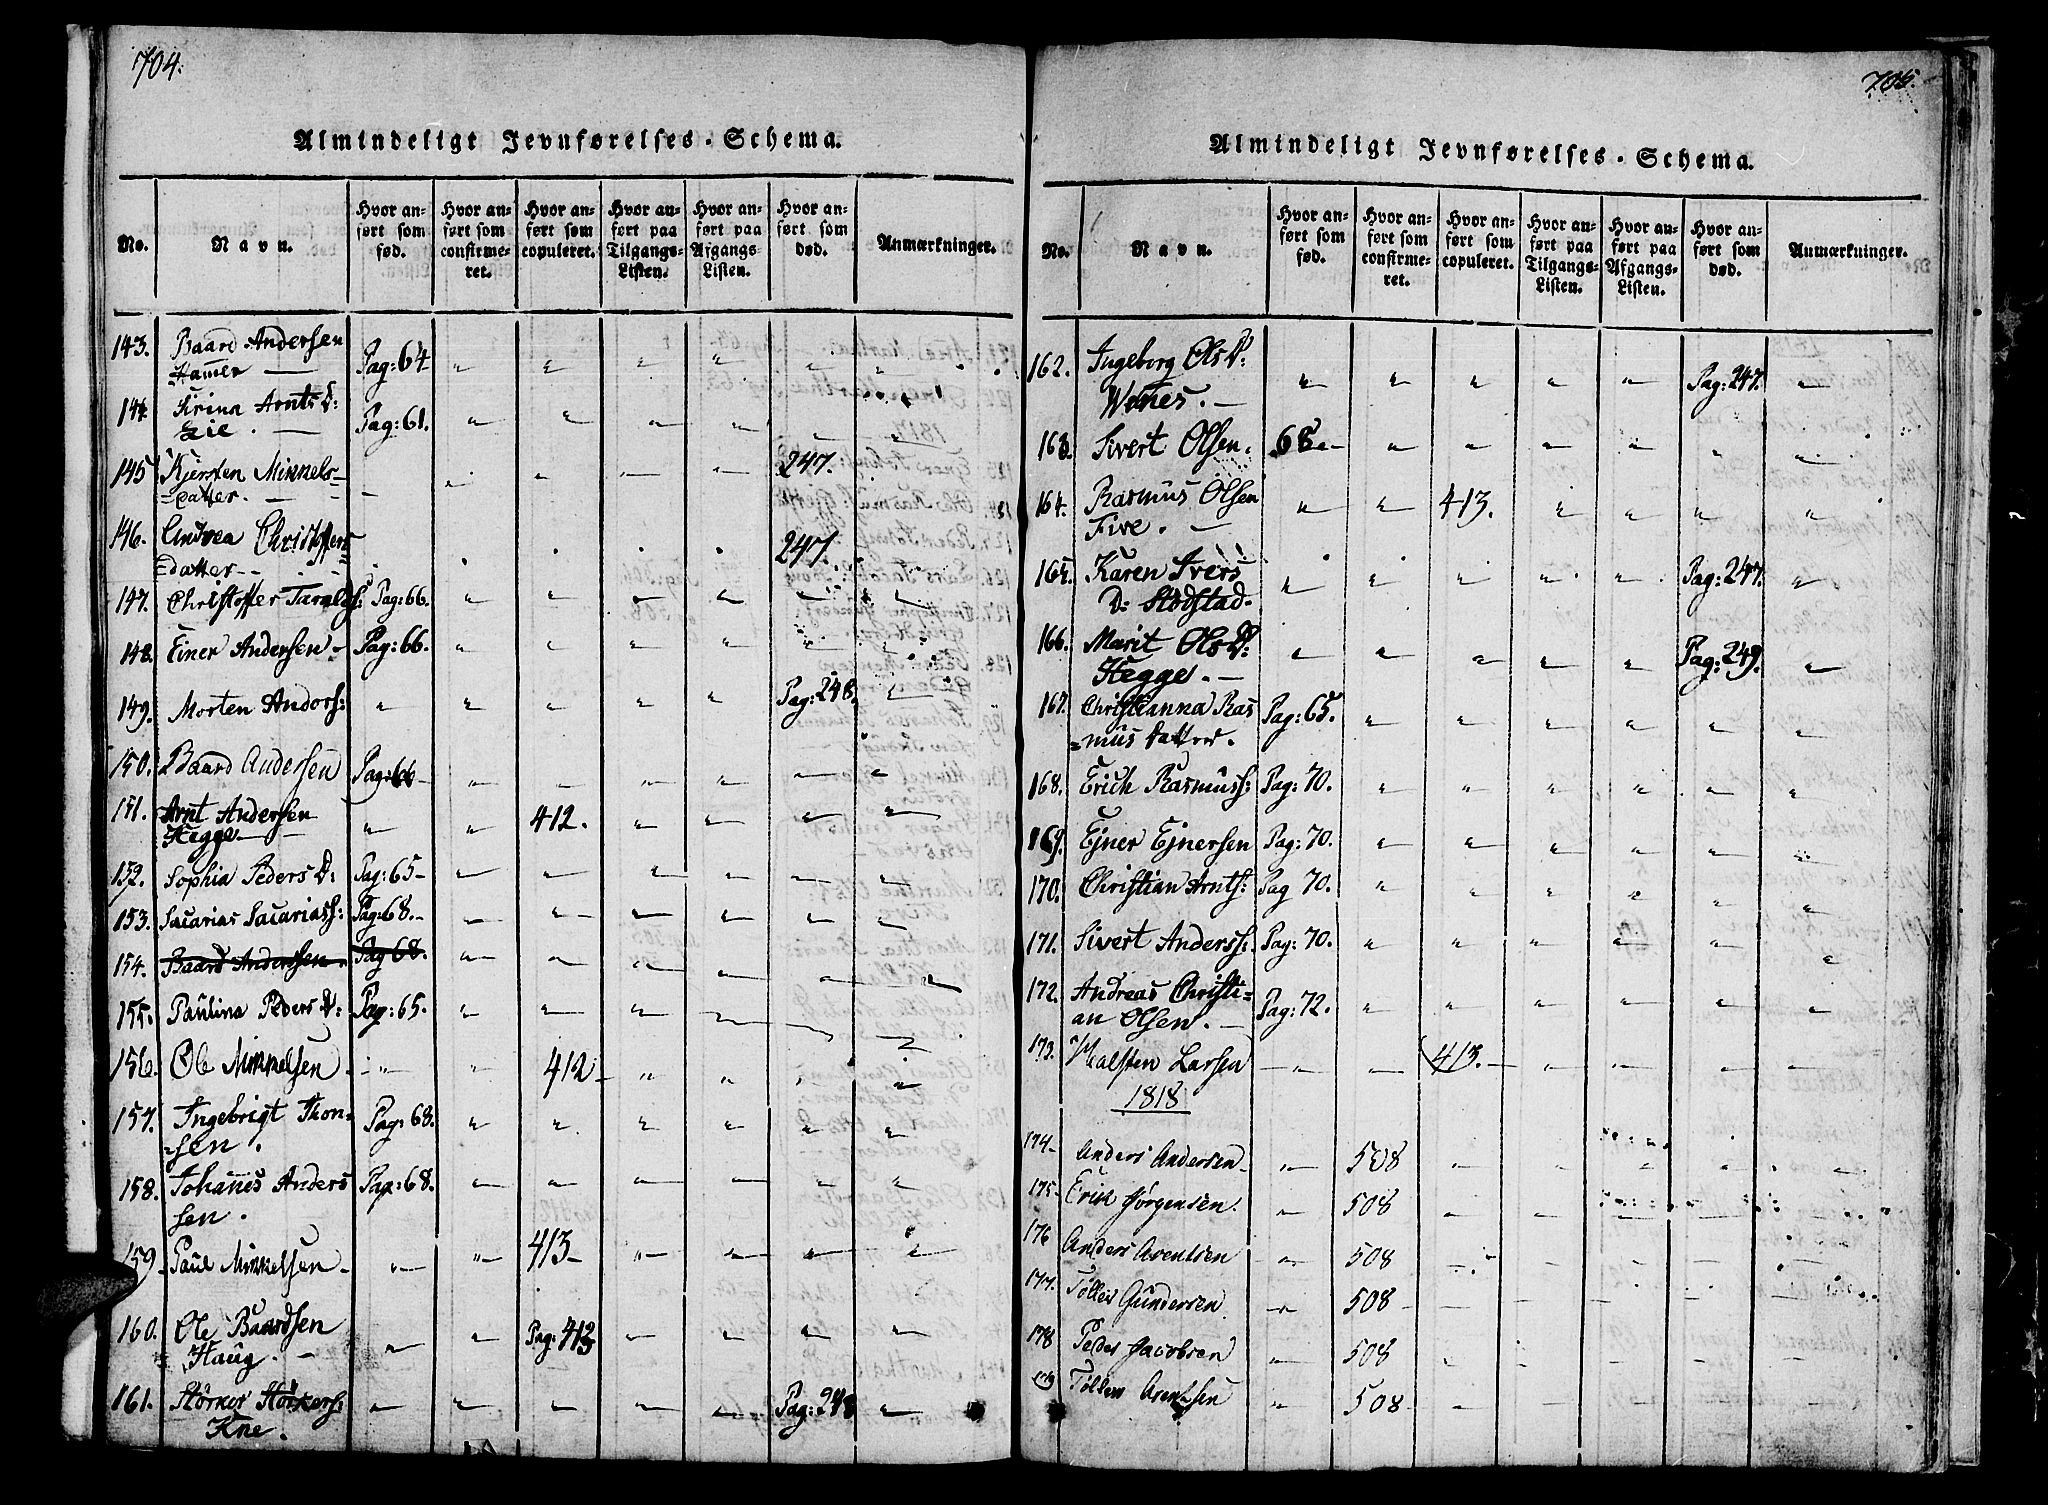 704.
Almindeligt Jevnførelses-Schema.
No. Navn. Hvor anført som fød. Hvor anført som confirmeret. Hvor anført som copuleret. Hvor anført paa Tilgangs-Listen. Hvor anført paa Afgangs-Listen. Hvor anført som død. Anmærkninger.
143. Baard Andersen Pag: 64
Hamer
144. Arnts D: Pag: 61.
145 Kjersten Mikkels- 247.
=Datter.
146. Andrea Christoffers 247.
=datter
147. Christoffer Taralds: Pag: 66.
148. Einer Andersen Pag: 66.
149. Morten Anders: Pag: 248.
150. Baard Andersen Pag: 66
151. Arnt Andersen 412.
Hegge
152. Sophia Peders D: Pag: 65
153. Sacarias Sacariass: Pag: 68.
154. Baard Andersen Pag 68.
155. Paulina Peders D: Pag: 65.
156. Ole Mikkelsen 412
157. Ingebrigt Thon- Pag: 68.
=sen.
158. Johannes Anders Pag: 68.
sen.
159. Paul Mikkelsen 413
160. Ole Baardsen Pag: 413
Haug.
161. Størker Størkers: Pag: 248
Kne.
705.
Almindeligt Jevnførelses-Schema.
No. Navn. Hvor anført som fød. Hvor anført som confirmeret. Hvor anført som copuleret. Hvor anført paa Tilgangs-Listen. Hvor anført paa Afgangs-Listen. Hvor anført som død. Anmærkninger.
162. Ingeborg Ols D: Pag: 247.
163. Sivert Olsen. 65
164. Rasmus Olsen 413.
Five.
165. Karen Ivers Pag: 247.
D: Stodstad.
166. Marit Ols D: Pag: 249.
Hegge.
167. Christianna Ras Pag: 65.
=mus Datter.
168. Erich Rasmuss: Pag: 70.
169. Ejner Ejnersen Pag: 70.
170. Christian Arnts: Pag 70.
171. Sivert Anderss: Pag: 70.
172. Andreas Christi= Pag: 72.
an Olsen.
173. Halsten Larsen 413.
1818
174. Anders Andersen 508
175. Erik Jørgensen. 508
176 Anders Arentsen 508
177. Tøller Gundersen 508
178 Peder Jacobsen 508
179 Tøllem Arentsen 508